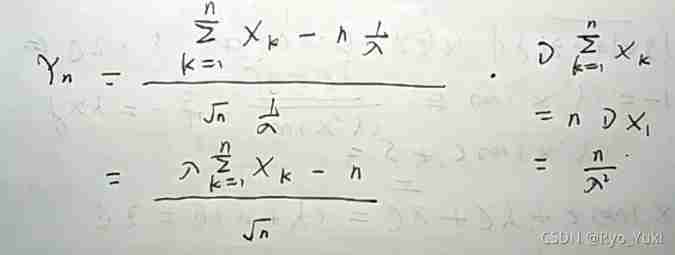 Yₙ = (∑_{k=1}^{n} X_k − n 1/λ) / (√n 1/λ) . D ∑_{k=1}^{n} X_k
= n D X₁
= (λ ∑_{k=1}^{n} X_k − n) / √n = n/λ²
CSDN @Ryo_Yuki